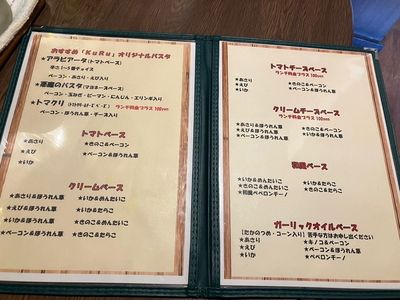 おすすめ「KuRu」オリジナルパスタ
★アラビアータ(トマトベース)
辛さ1~5番チョイス
ベーコン・あさり・えび入り
ベーコン・玉ねぎ・ピーマン・にんじん・エリンギ入り
★トマクリ ランチ料金プラス 100yen
ベーコン・ほうれん草・チーズ入り
トマトベース
★あさり ★きのこ&ベーコン
★えび ★ベーコン&ほうれん草
★いか
クリームベース
★あさり&ほうれん草 ★いか&めんたいこ
★えび&ほうれん草 ★いか&たらこ
★いか&ほうれん草 ★きのこ&めんたいこ
★ベーコン&ほうれん草 ★きのこ&たらこ
トマトチーズベース
ランチ料金プラス 100yen
★あさり ★きのこ&ベーコン
★えび ★ベーコン&ほうれん草
★いか
クリームチーズベース
ランチ料金プラス 100yen
★あさり&ほうれん草 ★いか&めんたいこ
★えび&ほうれん草 ★いか&たらこ
★いか&ほうれん草 ★きのこ&めんたいこ
★ベーコン&ほうれん草 ★きのこ&たらこ
和風ベース
★いか&めんたいこ ★いか&たらこ
★きのこ&めんたいこ ★きのこ&たらこ
★和風ペペロンチーノ
ガーリックオイルベース
(たかのつめ・コーン入り)苦手な方はお申し出ください
★あさり ★キノコ&ベーコン
★えび ★ベーコン&ほうれん草
★いか ★ペペロンチーノ